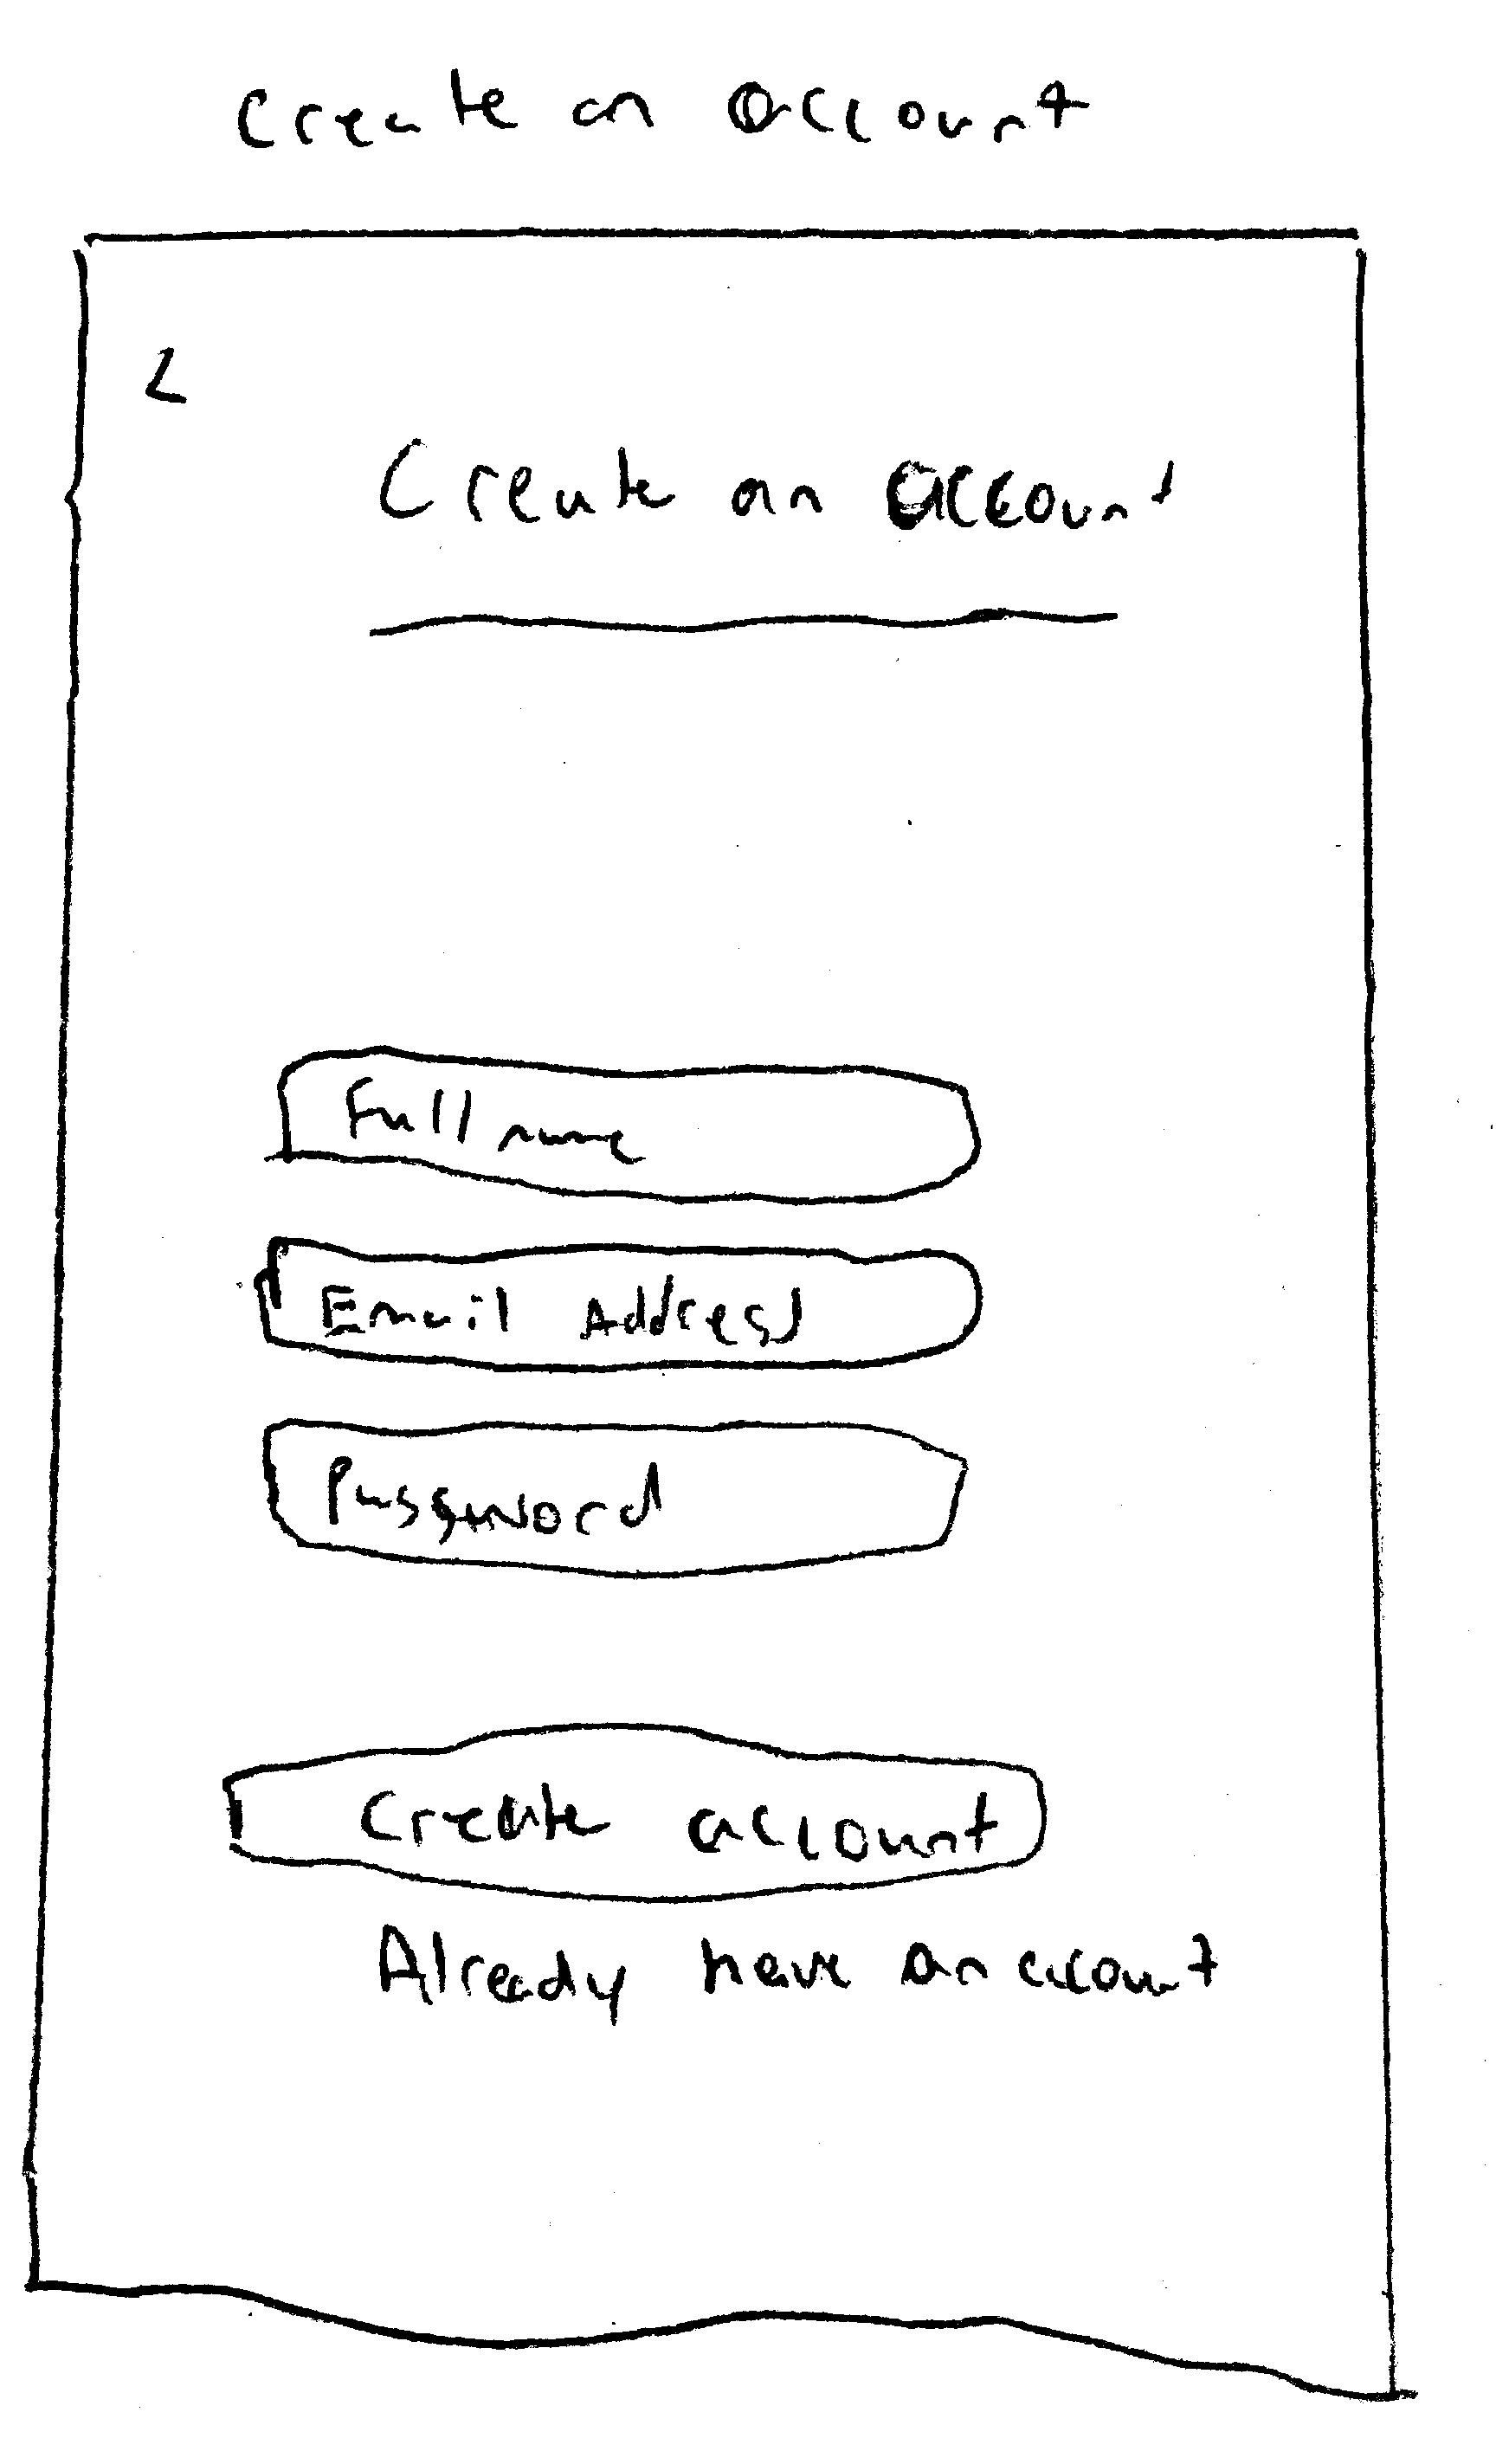 Create an account
<
Create an account
Full name
Email Address
Password
Create account
Already have an account